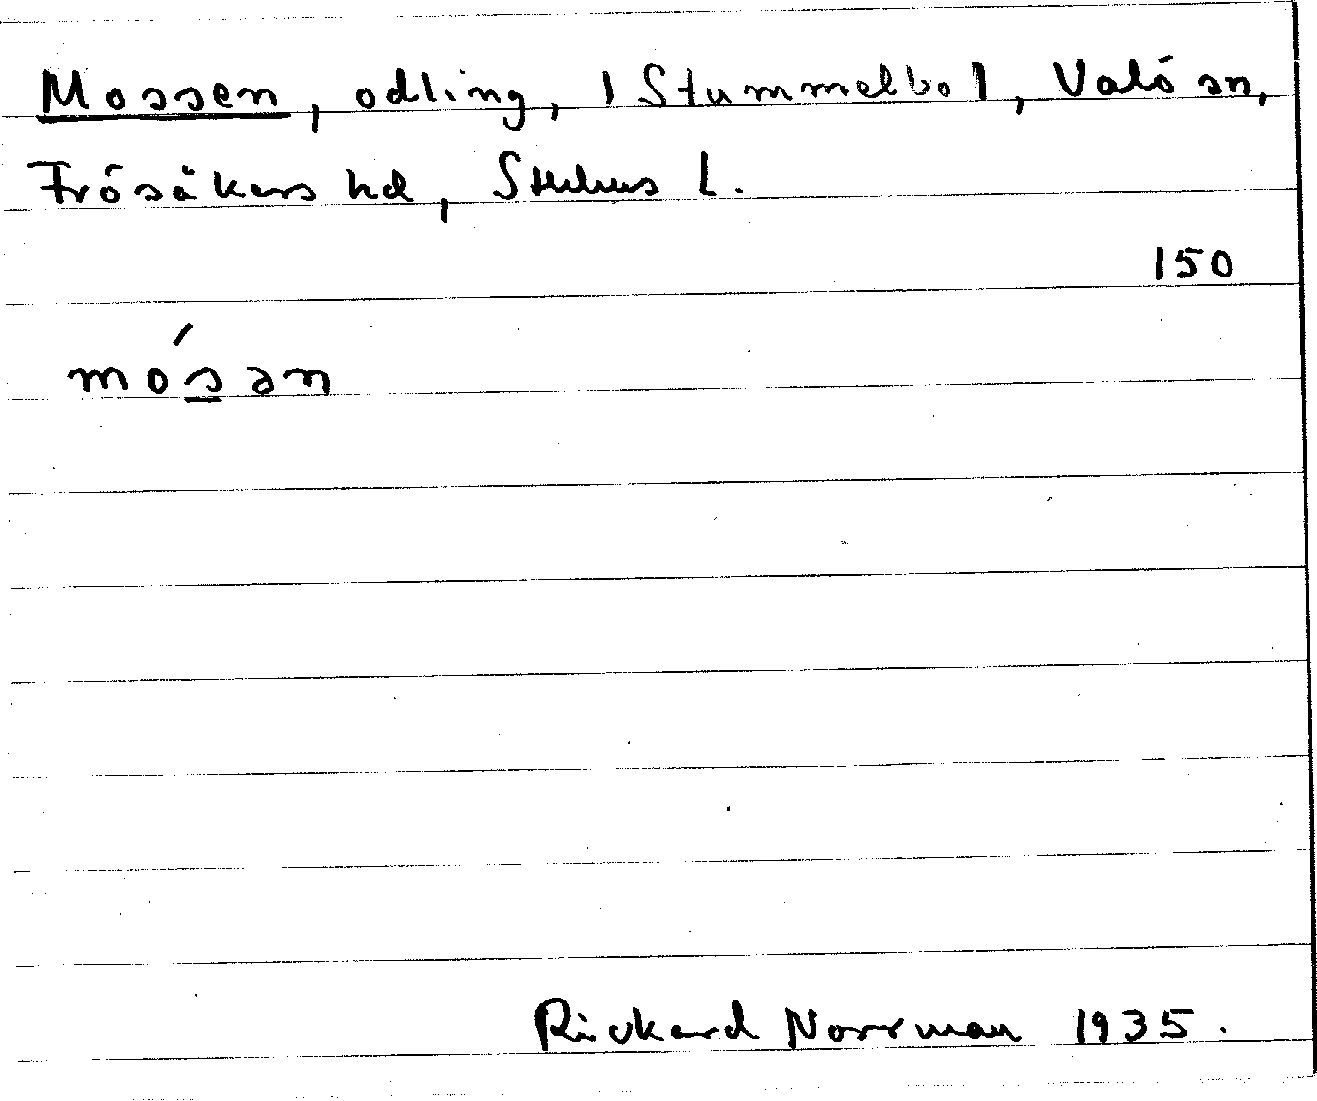 Mossen, odling, [Stummelbo], Valö sn,
Frösåkers hd, Sthlms L.
150
mósən
Rickard Norrman 1935.